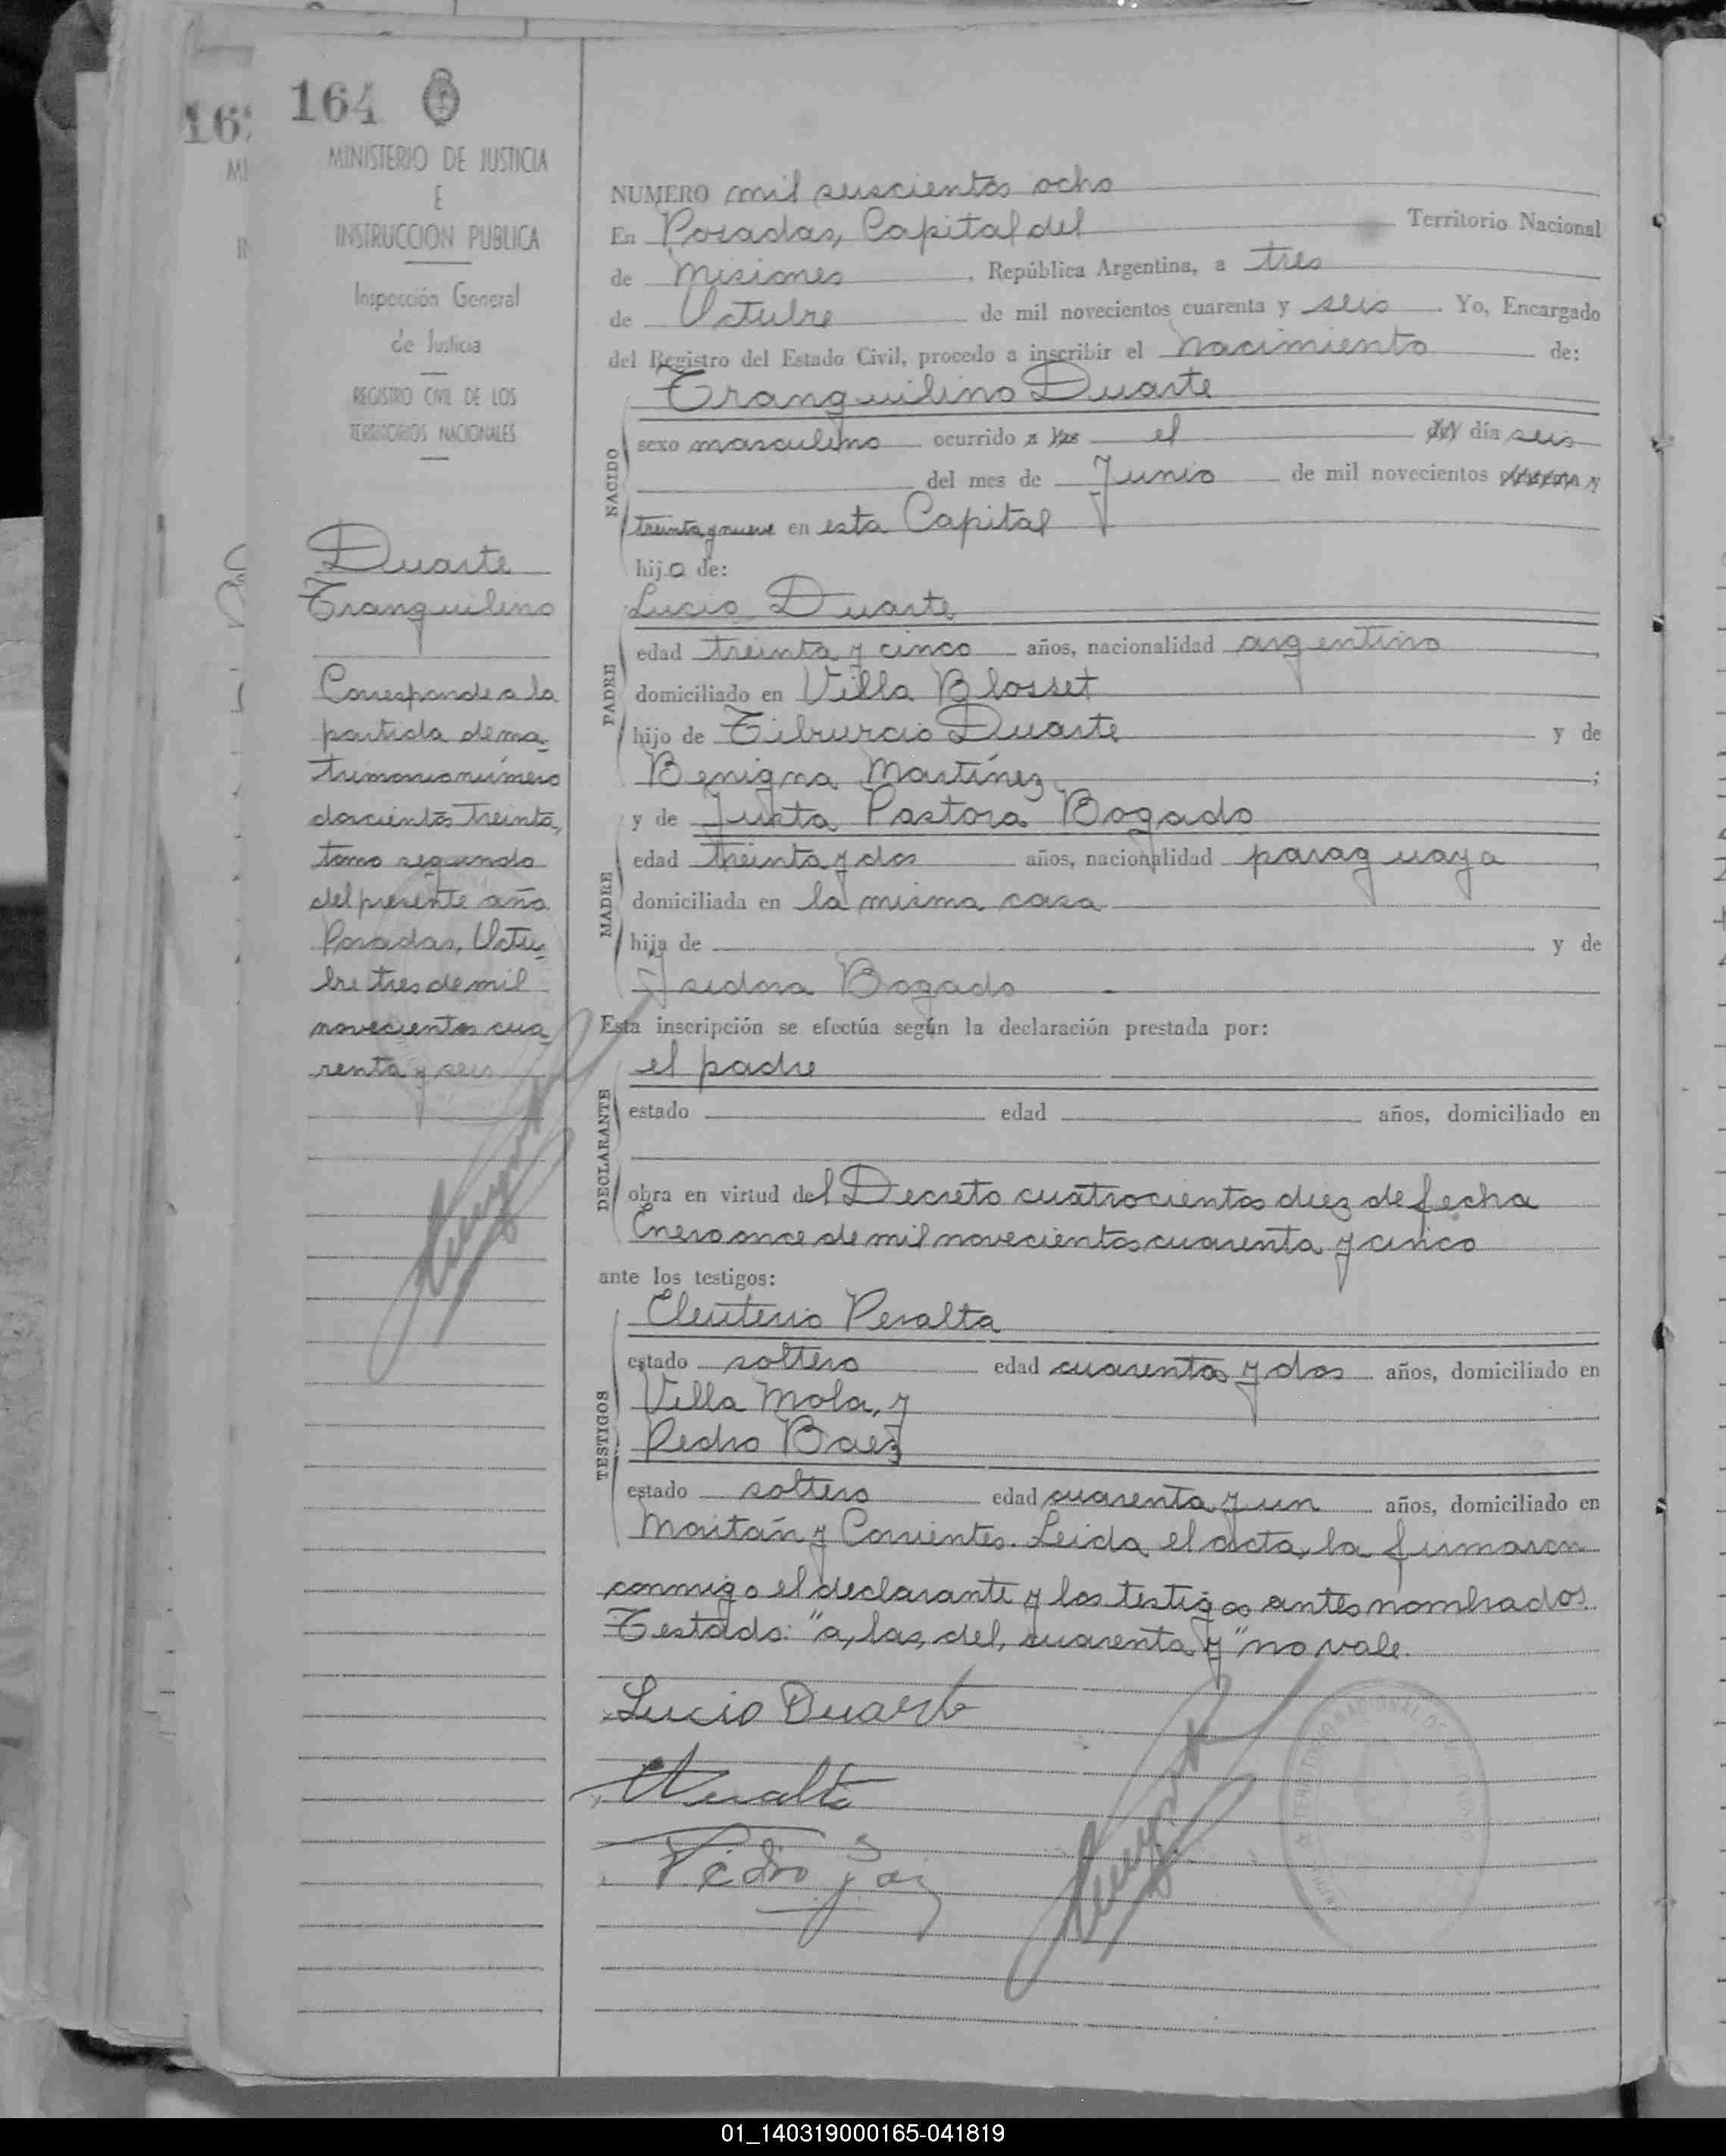 164
MINISTERIO DE JUSTICIA
E
INSTRUCCION PUBLICA
Inspección General
de Justicia
REGISTRO CIVIL DE LOS
TERRITORIOS NACIONALES
Duarte
Tranquilino
Corresponde a la
partida de ma-
trimonio número
doscientos treinta,
tomo segundo
del presente año
Posadas, Octu-
bre tres de mil
novecientos cua-
renta y seis
NUMERO mil seiscientos ocho
En Posadas, Capital del Territorio Nacional
de Misiones, República Argentina, a tres
de Octubre de mil novecientos cuarenta y seis. Yo, Encargado
del Registro del Estado Civil, procedo a inscribir el Nacimiento de:
Tranquilino Duarte
NACIDO
sexo masculino ocurrido a las el del día seis
del mes de Junio de mil novecientos cuarenta y
treinta y nueve en esta Capital
hijo de:
Lucio Duarte
PADRE
edad treinta y cinco años, nacionalidad argentino,
domiciliado en Villa Blosset
hijo de Tiburcio Duarte y de
Benigna Martínez;
y de Justa Pastora Bogado
MADRE
edad treinta y dos años, nacionalidad paraguaya,
domiciliada en la misma casa
hija de y de
Isidora Bogado
Esta inscripción se efectúa según la declaración prestada por:
el padre
DECLARANTE
estado edad años, domiciliado en
obra en virtud del Decreto cuatrocientos diez de fecha
Enero once de mil novecientos cuarenta y cinco
ante los testigos:
Eleuterio Peralta
TESTIGOS
estado soltero edad cuarenta y dos años, domiciliado en
Villa Mola, y
Pedro Baez
estado soltero edad cuarenta y un años, domiciliado en
Maitán y Corrientes. Leida el acta, la firmaron
conmigo el declarante y los testigos antes nombrados
Testado: "a, las, del, cuarenta y" no vale.
Lucio Duarte
Peralta
Pedro Baez
01_140319000165-041819